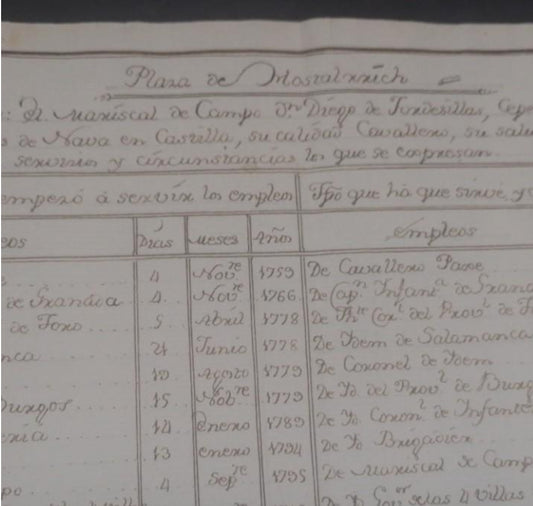 Plaza de Mostalnrich
: El Mariscal de Campo Dn. Diego de Tordesillas, Cepe
s de Nava en Castilla, su calidad Cavallero, su salu
servicios y circunstancias los que se expresan.
empezó à servir los empleos Tpõ que há que sirve, y
eos Dias Meses Años Empleos
4 Novre 1759 De Cavallero Page
de Granada 4 Novre 1766 De Capn Infanta de Grana
de Toro 5 Abril 1778 De Corl del Provl de
nca 21 Junio 1778 De Idem de Salamanca
10 Agosto 1779 De Coronel de Idem
Burgos 15 Nobre 1779 De Yd. del Provl de Burg
14 enero 1789 De Yd. Coronl de Infante
13 enero 1794 De Yd. Brigadier
po 4 Sepre 1795 De Mariscal de Camp
4 villas